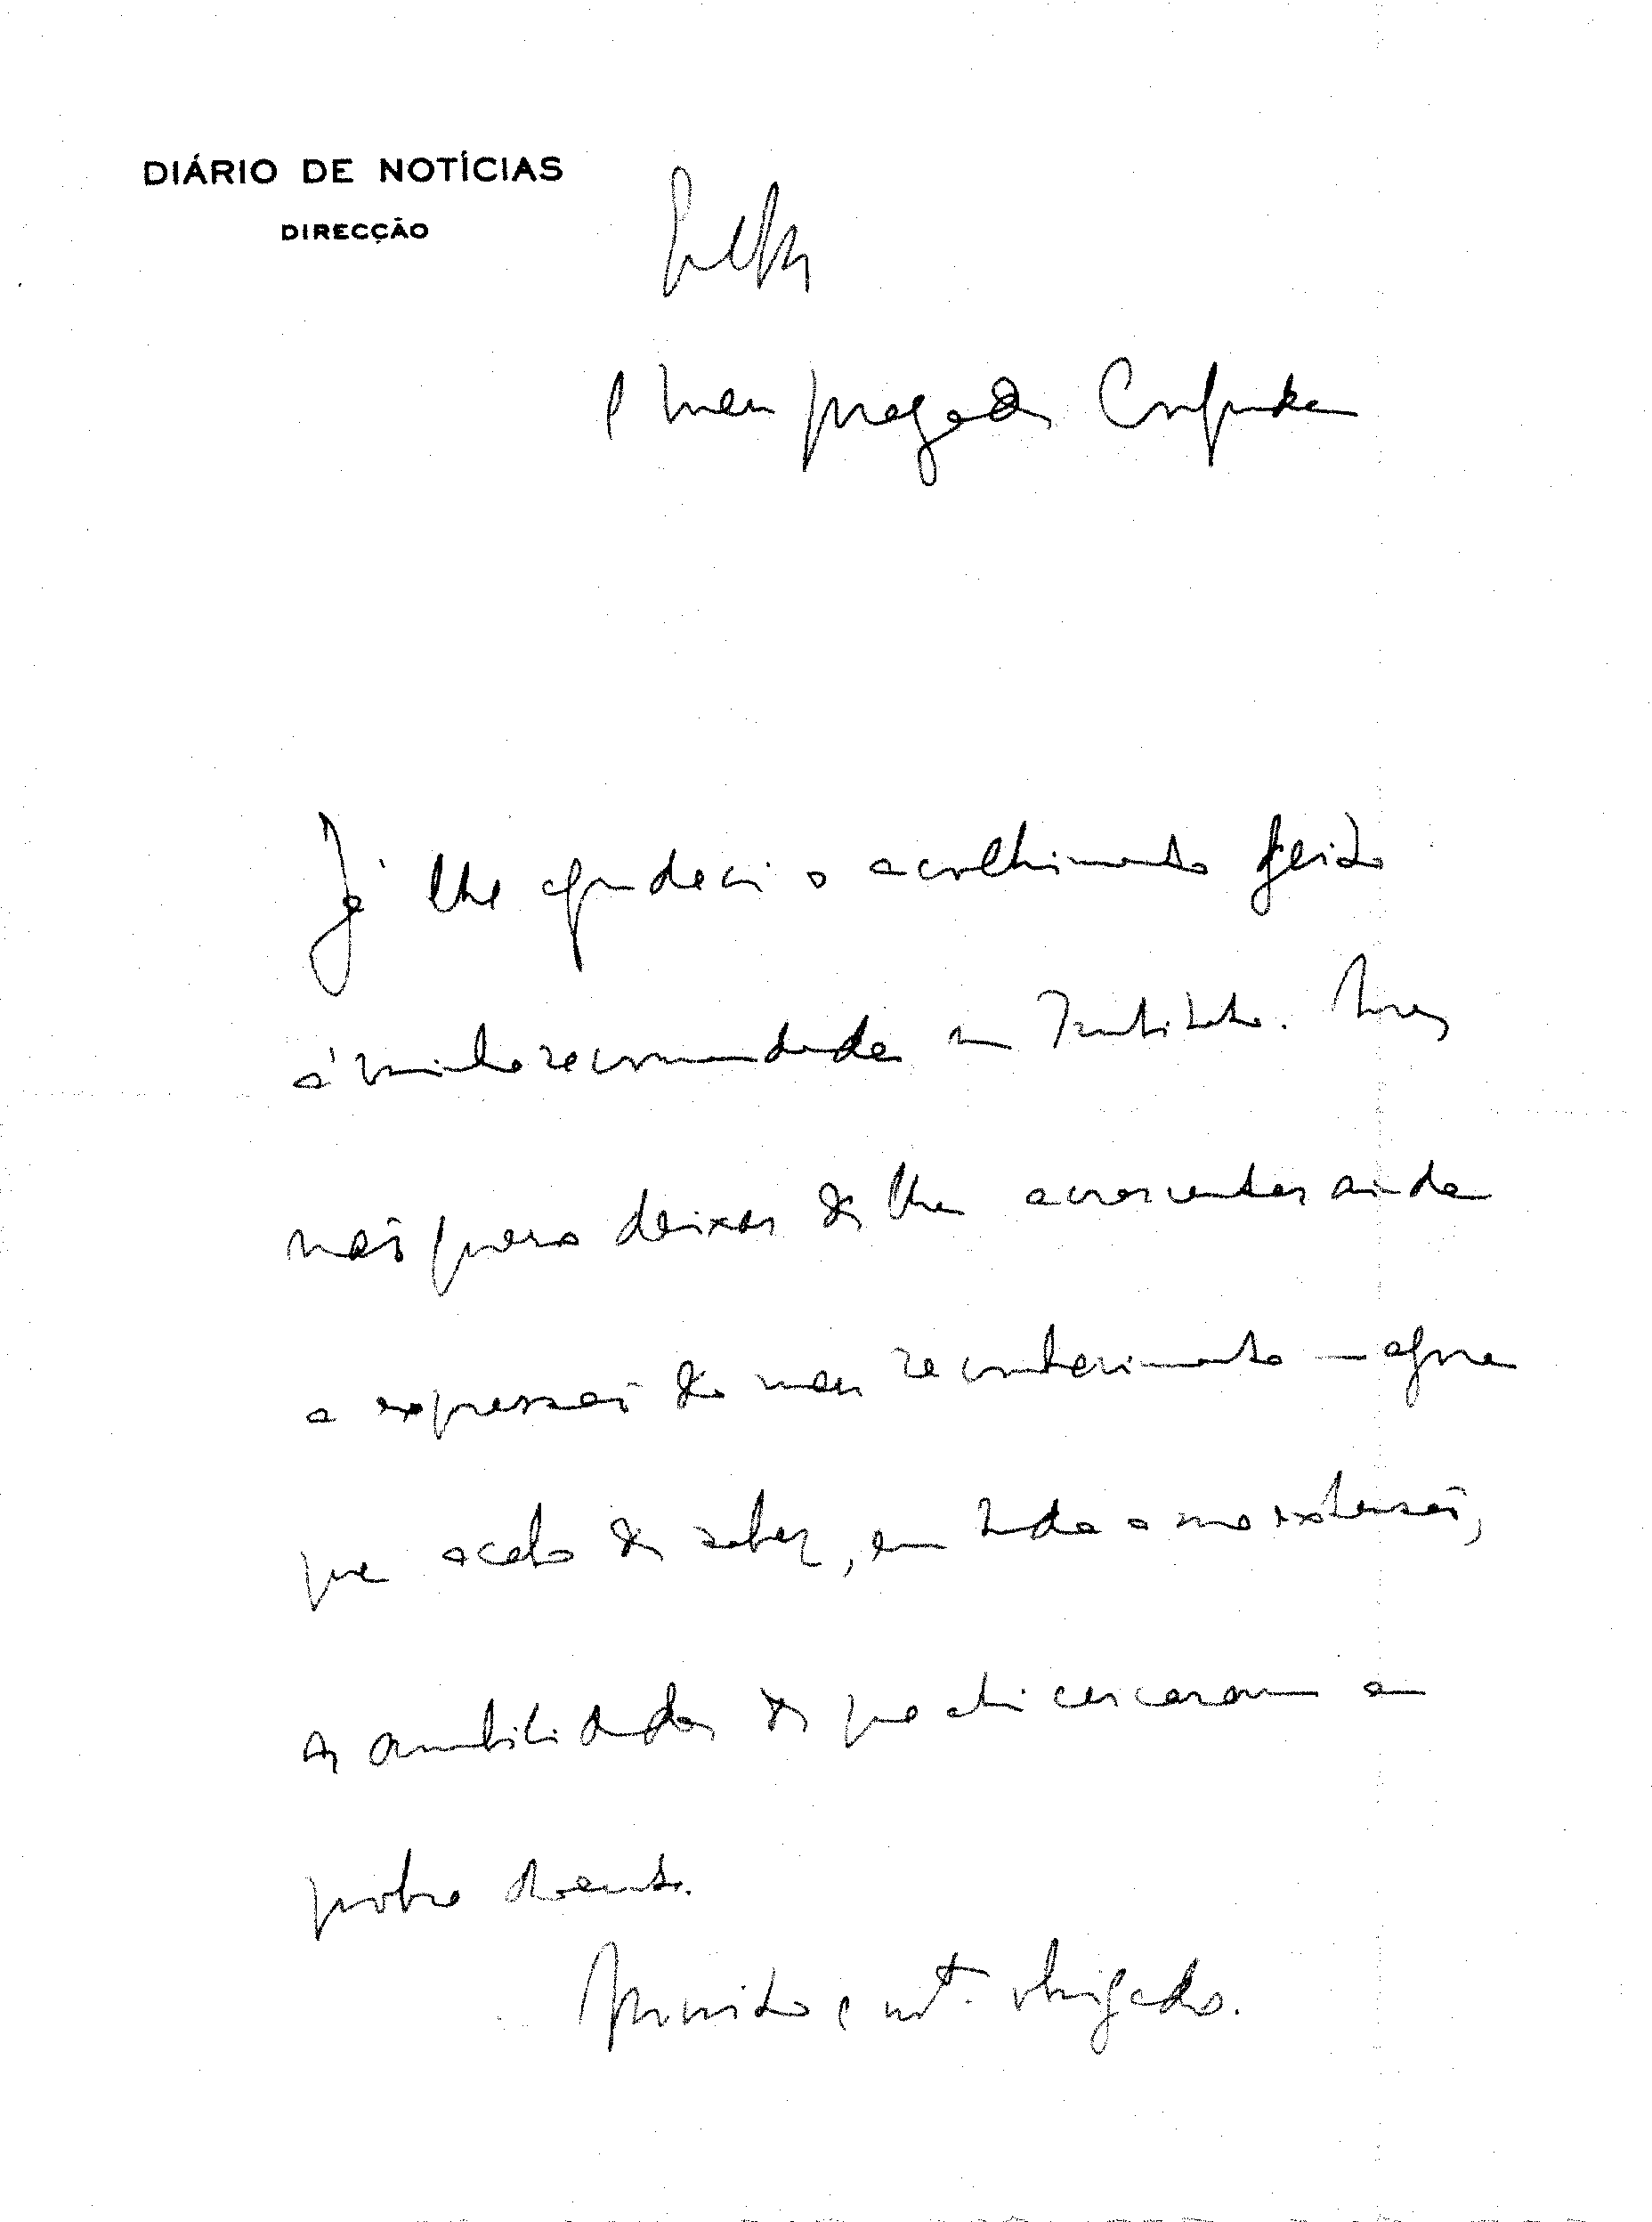 DIÁRIO DE NOTÍCIAS
DIRECÇÃO
e meu prezado Confrade
Já lhe agradeci o acolhimento feito
á minha recomendada no Instituto. Mas
não quero deixar de lhe acrescentar ainda
a expressão do meu reconhecimento — agora
que acabo de saber, em toda a sua extensão,
as amabilidades de que ahi cercaram a
pobre doente.
Muito e mt.º obrigado.